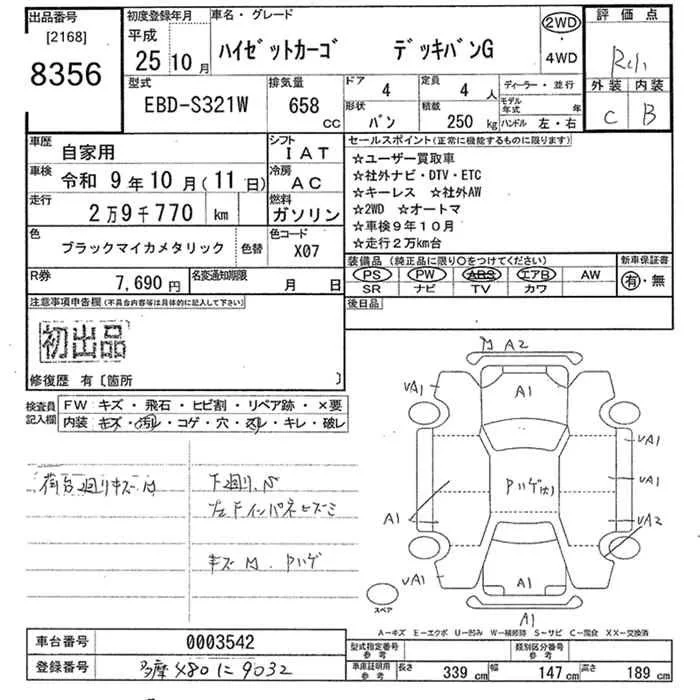 出品番号
[2168]
8356
初度登録年月
平成
25 10 月
車名・グレード
ハイゼットカーゴ デッキバンG
2WD
・
4WD
評価点
外装 内装
C B
型式
EBD-S321W
排気量
658
CC
ドア 4
形状 バン
定員 4 人
積載 250 kg
ディーラー・並行
モデル年式 年
ハンドル 左・右
車歴
自家用
シフト
IAT
車検
令和 9年10月(11日)
冷房
AC
走行
2万9千770 km
燃料
ガソリン
色
ブラックマイカメタリック 色替
色コード
X07
R券
7,690 円
名変通知期限
月 日
セールスポイント(正常に機能するものに限ります)
☆ユーザー買取車
☆社外ナビ・DTV・ETC
☆キーレス ☆社外AW
☆2WD ☆オートマ
☆車検9年10月
☆走行2万km台
装備品(純正品に限り○をつけてください)
新車保証書
PS PW ABS エアB AW
SR ナビ TV カワ
有・無
後日品
注意事項申告欄(不具合内容等は具体的に記入して下さい)
初出品
修復歴 有〔箇所 〕
検査員記入欄
FW キズ・飛石・ヒビ割・リペア跡・×要
内装 キズ・汚レ・コゲ・穴・スレ・キレ・破レ
荷台廻りキズM
下廻りS
左Fインパネヒズミ
キズM Pハゲ
M A2
A1
νA1
νA1
Pハゲ(大)
νA1
A1
νA2
νA1
A1
νA1
A1
スペア
A-キズ E-エクボ U-凹み W-補修跡 S-サビ C-腐食 XX-交換済
車台番号
0003542
登録番号
多摩 480 に 9032
型式指定番号
参考
類別区分番号
参考
車庫証明用
参考
長さ 339 cm 幅 147 cm 高さ 189 cm